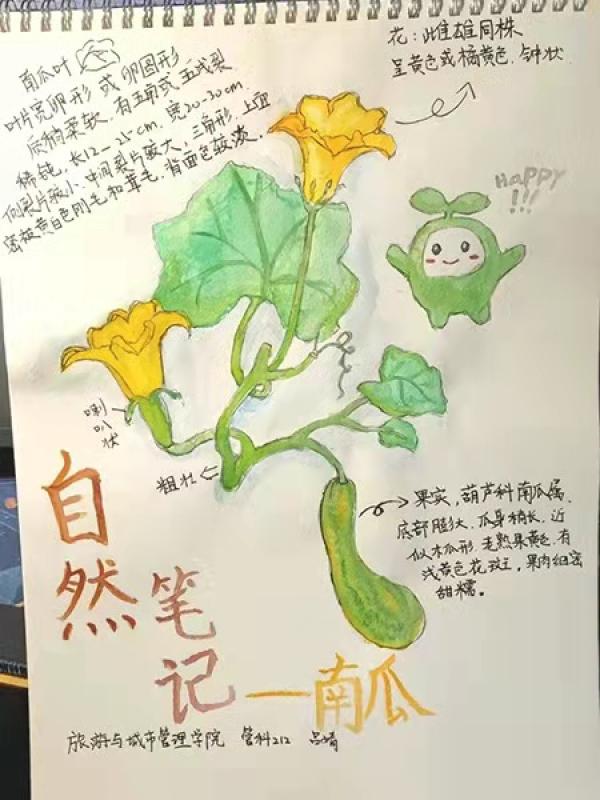 南瓜叶
叶片宽卵形或卵圆形
质稍柔软.有五角或五浅裂
稀钝,长12-25cm.宽20-30cm.
侧裂片较小.中间裂片较大,三角形.上面
密被黄白色刚毛和茸毛.背面色较淡.
花:雌雄同株
呈黄色或橘黄色.钟状
HaPPY
!!!
喇
叭
状
粗壮
果实,葫芦科南瓜属.
底部膨大.瓜身稍长,近
似木瓜形.老熟果黄色.有
浅黄色花斑,果肉细密
甜糯。
自
然
笔
记
—南瓜
旅游与城市管理学院 管科212